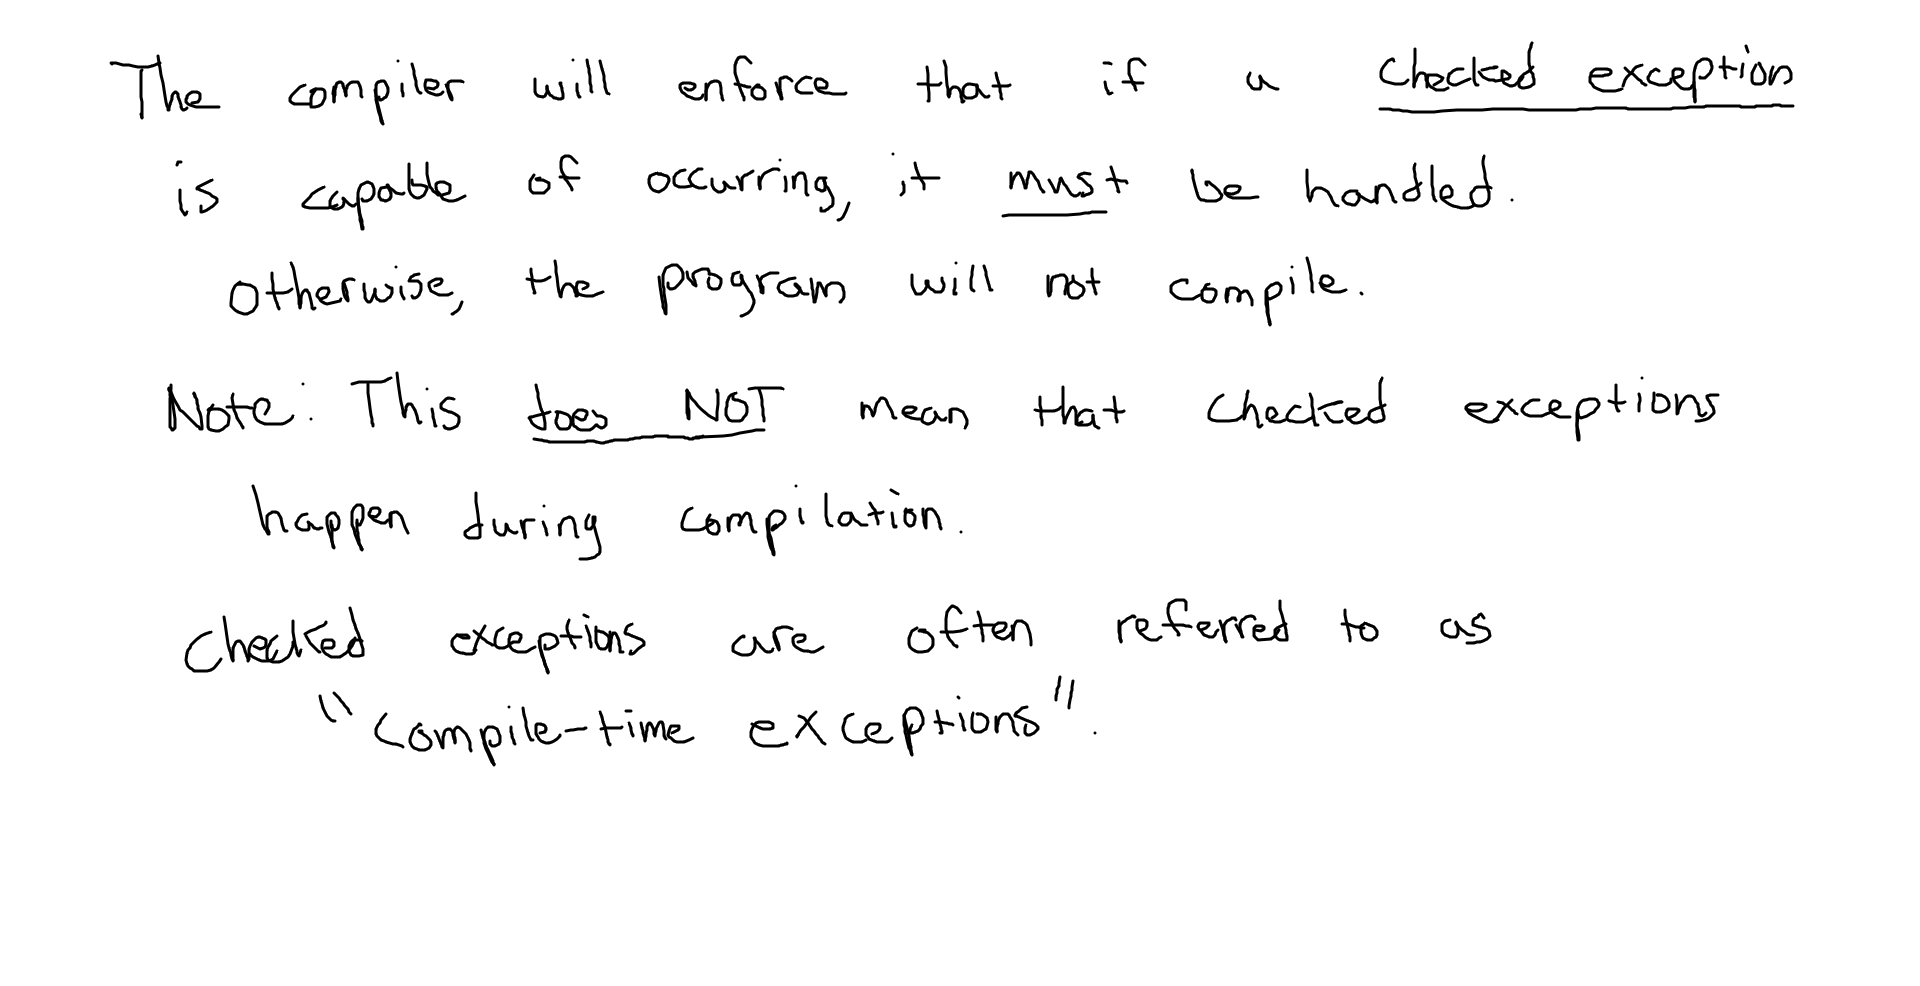 The compiler will enforce that if a checked exception
is capable of occurring, it must be handled.
Otherwise, the program will not compile.
Note: This does NOT mean that checked exceptions
happen during compilation.
Checked exceptions are often referred to as
"compile-time exceptions".